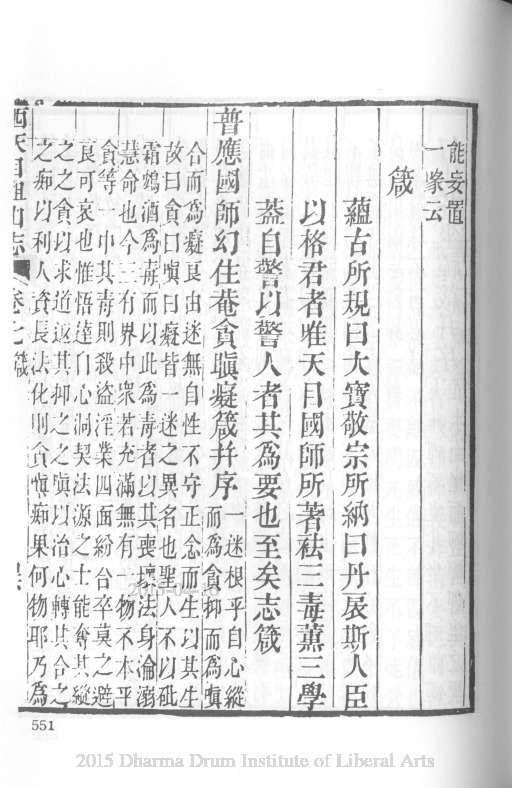 能妄置
一喙云
箴
蘊古所規曰大寶敬宗所納曰丹扆斯人臣
以格君者唯天目國師所著祛三毒薰三學
葢自警以警人者其為要也至矣志箴
普應國師幻住菴貪瞋癡箴并序
一迷根乎自心縱
而為貪抑而為嗔
合而為癡良由迷無自性不守正念而生以其生
故曰貪曰嗔曰癡皆一迷之異名也聖人不以砒
霜鴆酒為毒而以此為毒者以其喪壞法身淪溺
慧命也今三有界中衆若充滿無有一物不本乎
貪等一中其毒則殺盜淫業四面紛合卒莫之避
良可哀也惟悟達自心洞契法源之士能奪其縱
之之貪以求道返其抑之之嗔以治心轉其合之
之痴以利人資長法化則貪嗔痴果何物耶乃為
西天目祖山志 卷七 箴
551
2015 Dharma Drum Institute of Liberal Arts